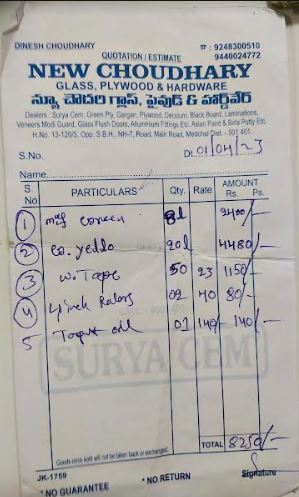 DINESH CHOUDHARY
☎ : 9248300510
QUOTATION / ESTIMATE
9440024772
NEW CHOUDHARY
GLASS, PLYWOOD & HARDWARE
న్యూ చౌదరి గ్లాస్, ప్లైవుడ్ & హార్డ్‌వేర్
Dealers : Surya Cem, Green Ply, Gargan, Plywood, Decolum, Black Board, Laminations,
Veneers Modi Guard, Glass Flush Doors, Aluminium Fittings Etc. Asian Paint & Birla Putty Etc.
H.No. 13-120/5, Opp. S.B.H., NH-7, Road, Main Road, Medchal Dist.- 501 401.
S.No.
Dt. 01/04/23
Name
S. No. PARTICULARS Qty. Rate AMOUNT Rs. Ps.
1 8l 2400/-
2 20l 4480/-
3 W. Tape 50 23 1150/-
4 4 inch 02 40 80/-
5 01 140/- 140/-
SURYA CEM
TOTAL 8250/-
Goods once sold will not be taken back or exchanged.
JK-1759
* NO GUARANTEE
* NO RETURN
Signature